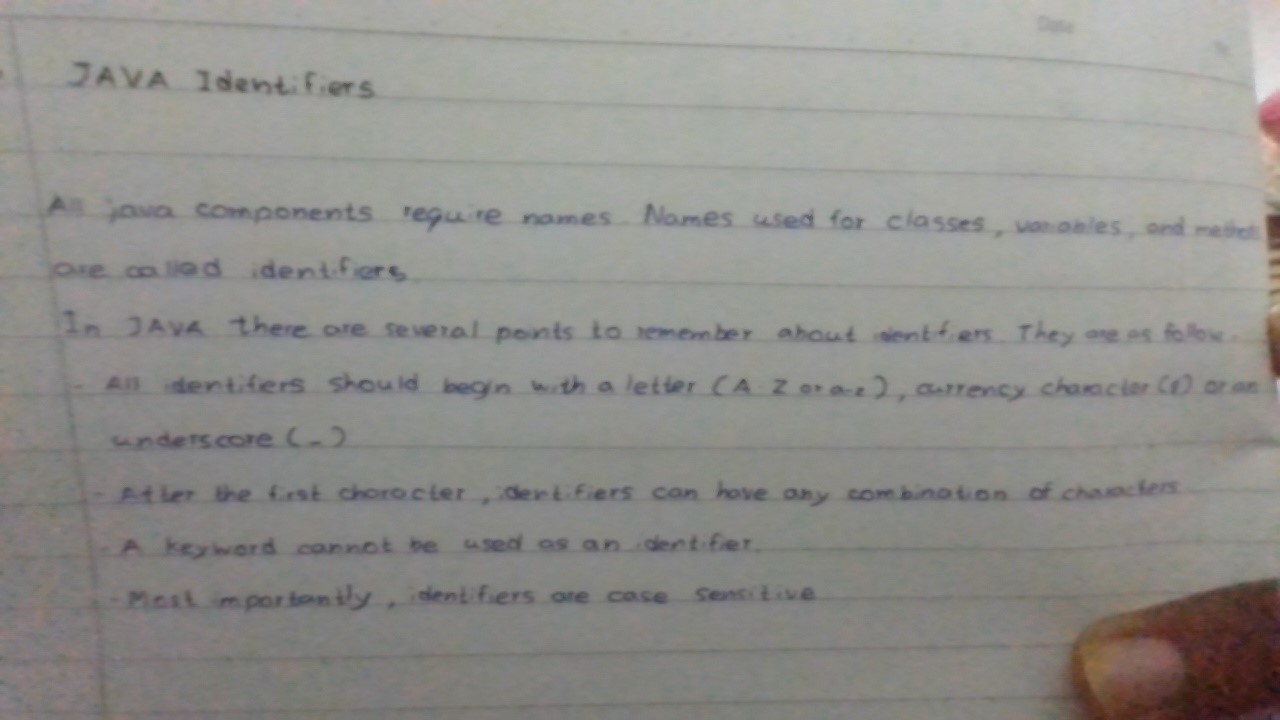 Date
JAVA Identifiers
All java components require names. Names used for classes, variables, and methods
are called identifiers
In JAVA there are several points to remember about identifiers. They are as follow -
- All identifiers should begin with a letter (A-Z or a-z), currency character ($) or an
underscore (_)
- After the first character, identifiers can have any combination of characters
- A keyword cannot be used as an identifier.
- Most importantly, identifiers are case sensitive